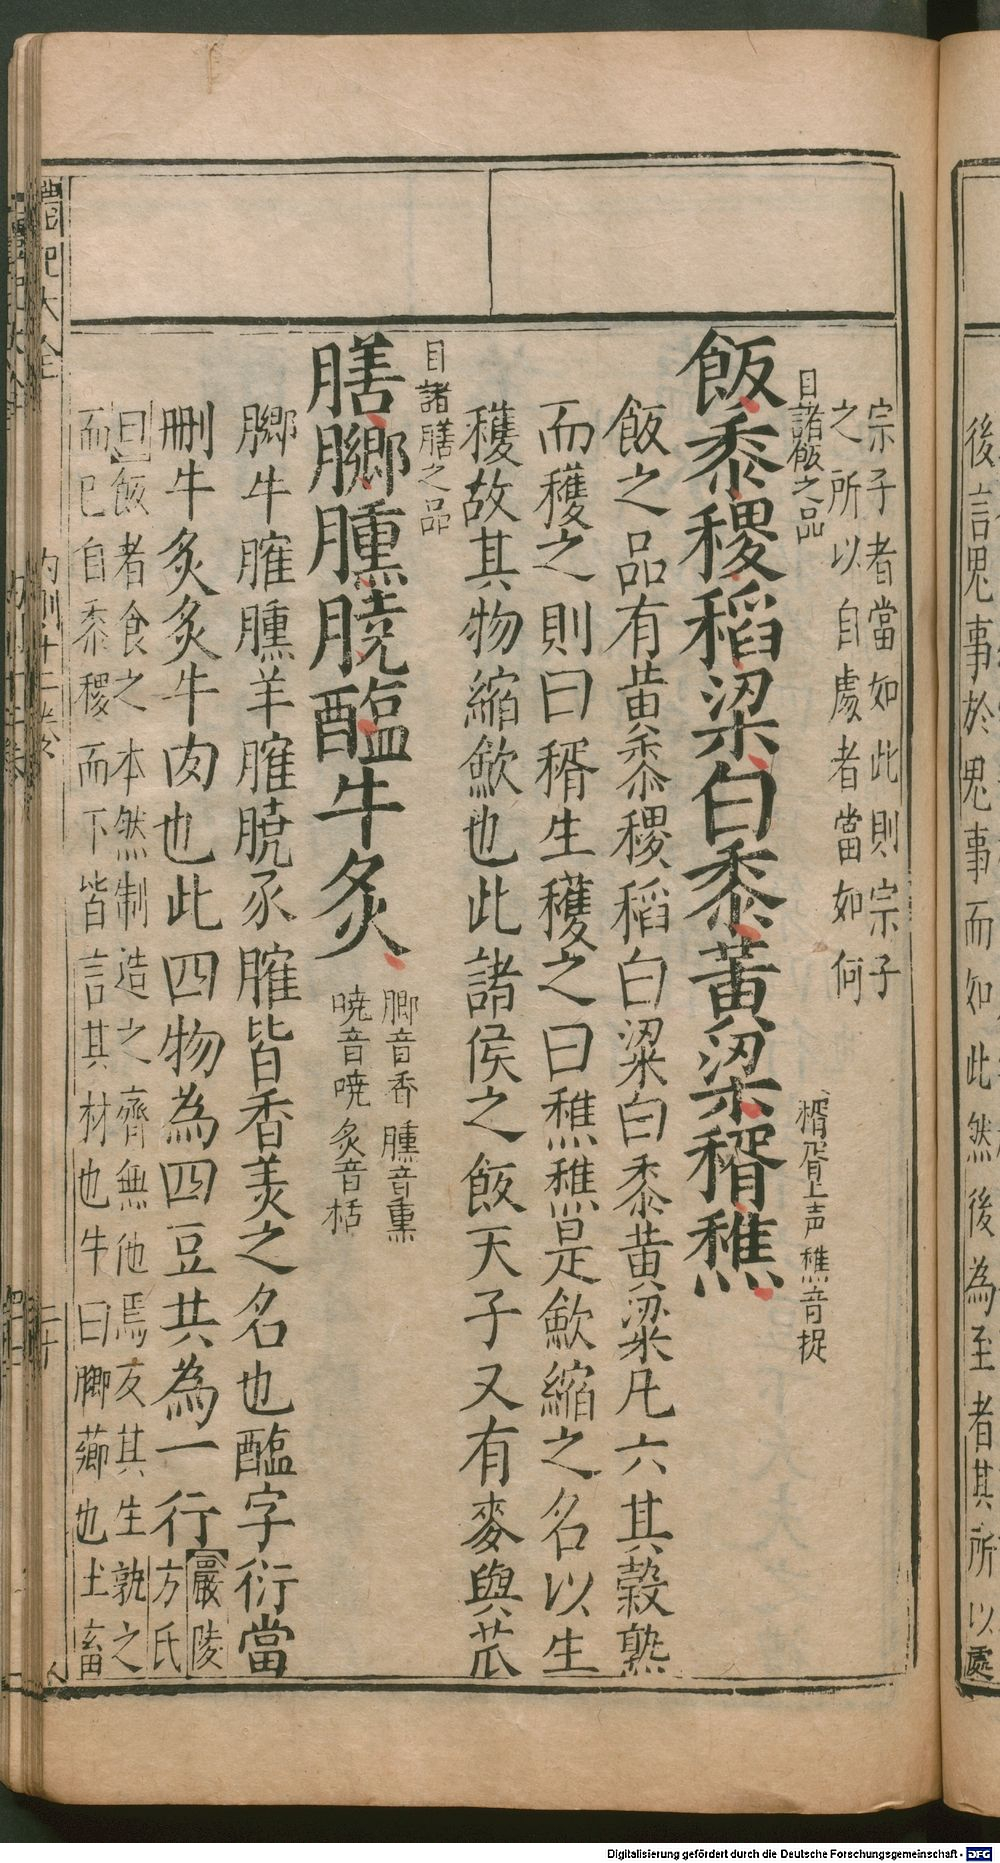 後言思事於思事而如此然後為至者其所以處
宗子者當如此則宗子
之所以自處者當如何
目諸飯之品
飯黍稷稻粱白黍黃粱稰穛
稰胥上声穛音捉
飯之品有黃黍稷稻白粱白黍黃粱凡六其穀熟
而穫之則曰稰生穫之曰穛穛是歛縮之名以生
穫故其物縮歛也此諸侯之飯天子又有麥與苽
目諸膳之品
膳膷臐膮醢牛炙
膷音香臐音熏
膮音嘵炙音柘
膷牛臛臐羊臛膮豕臛皆香美之名也醢字衍當
刪牛炙炙牛肉也此四物為四豆共為一行
嚴陵
方氏
曰飯者食之本然制造之齊無他焉友其生孰之
而已自黍稷而下皆言其材也牛曰膷薌也土畜
禮記大全
內則十二卷
二十